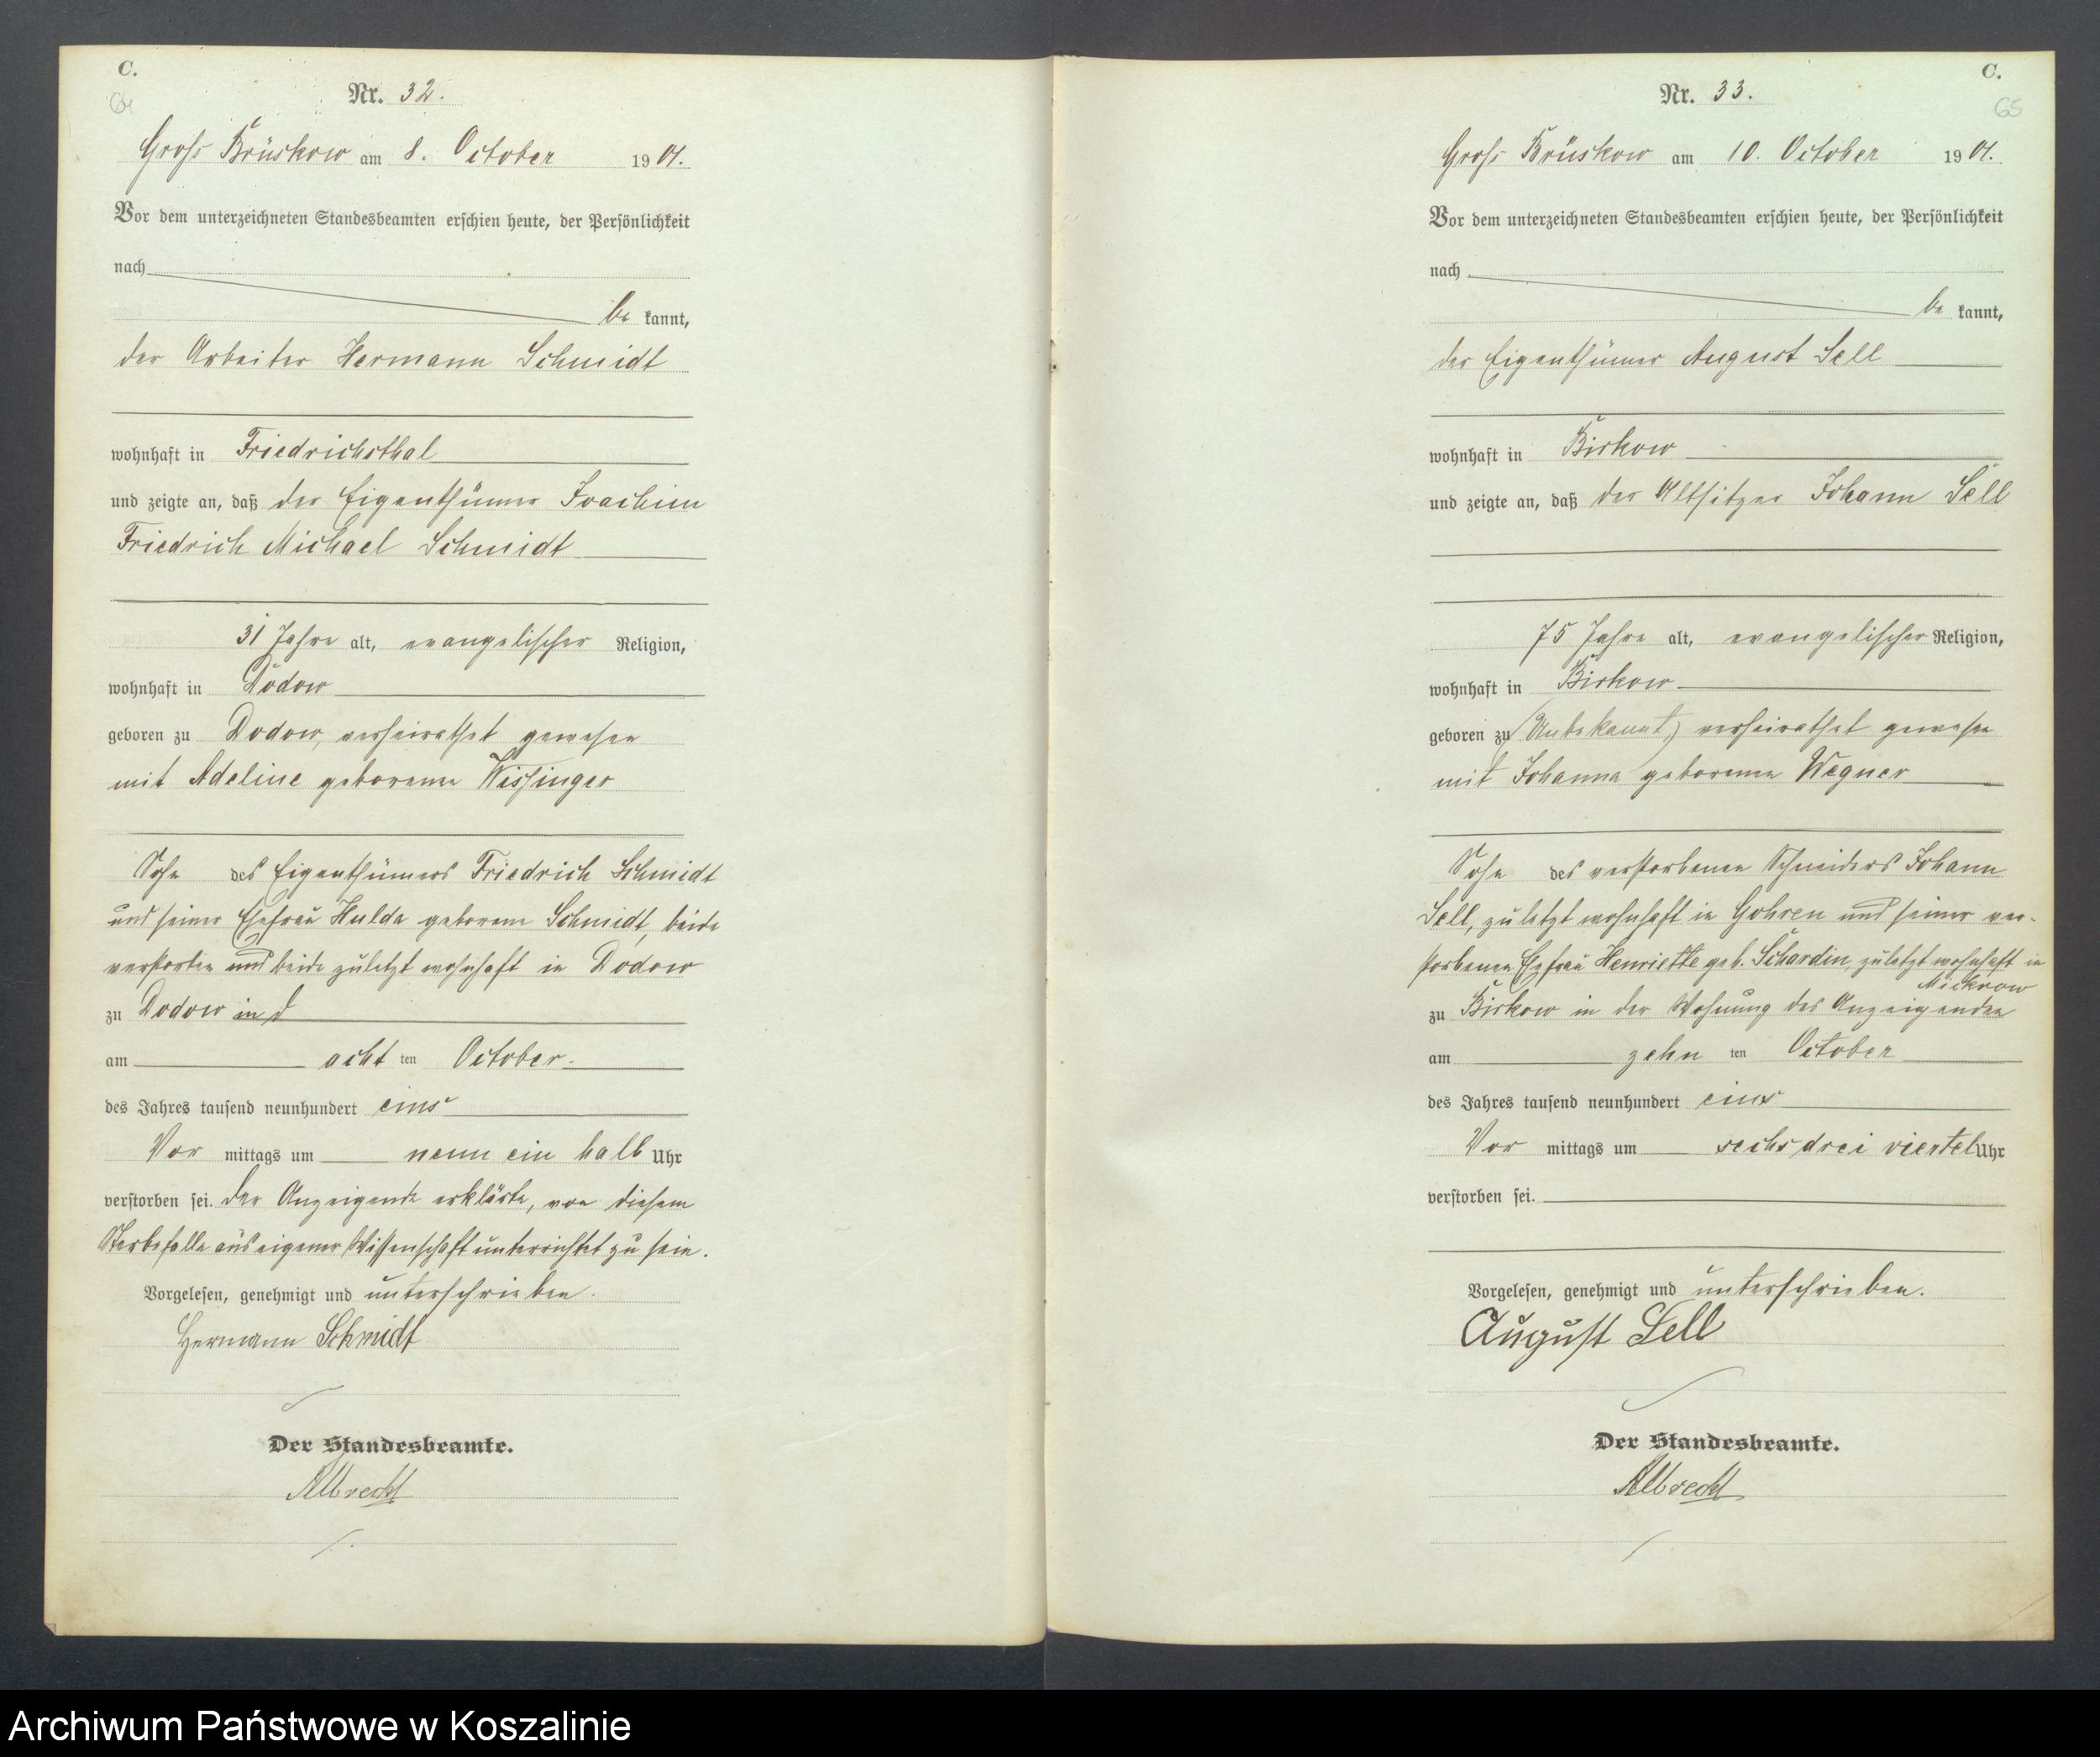 C.
64
Nr. 32.
Gross Brüskow am 8. October 1901.
Vor dem unterzeichneten Standesbeamten erschien heute, der Persönlichkeit
nach
be kannt,
der Arbeiter Hermann Schmidt
wohnhaft in Friedrichsthal
und zeigte an, daß der Eigenthümer Joachim
Friedrich Michael Schmidt
31 Jahre alt, evangelischer Religion,
wohnhaft in Dodow
geboren zu Dodow, verheirathet gewesen
mit Adeline geborenen Wissinger
Sohn des Eigenthümers Friedrich Schmidt
und seiner Ehefrau Hulda geborenen Schmidt, beide
verstorben und beide zuletzt wohnhaft in Dodow
zu Dodow in d
am acht ten October.
des Jahres tausend neunhundert eins
Vor mittags um neun ein halb Uhr
verstorben sei. Der Anzeigende erklärte, von diesem
Sterbefalle aus eigener Wissenschaft unterrichtet zu sein.
Vorgelesen, genehmigt und unterschrieben.
Hermann Schmidt
Der Standesbeamte.
Albrecht
C.
65
Nr. 33.
Gross Brüskow am 10. October 1901.
Vor dem unterzeichneten Standesbeamten erschien heute, der Persönlichkeit
nach
be kannt,
der Eigenthümer August Sell
wohnhaft in Birkow
und zeigte an, daß der Altsitzer Johann Sell
75 Jahre alt, evangelischer Religion,
wohnhaft in Birkow
geboren zu (Unbekannt,) verheirathet gewesen
mit Johanna geborenen Wegner
Sohn des verstorbenen Schneiders Johann
Sell, zuletzt wohnhaft in Gohren und seiner ver-
storbenen Ehefrau Henriette geb. Schardin, zuletzt wohnhaft in
Mickrow
zu Birkow in der Wohnung des Anzeigenden
am zehn ten October
des Jahres tausend neunhundert eins
Vor mittags um sechs drei viertel Uhr
verstorben sei.
Vorgelesen, genehmigt und unterschrieben.
August Sell
Der Standesbeamte.
Albrecht
Archiwum Państwowe w Koszalinie